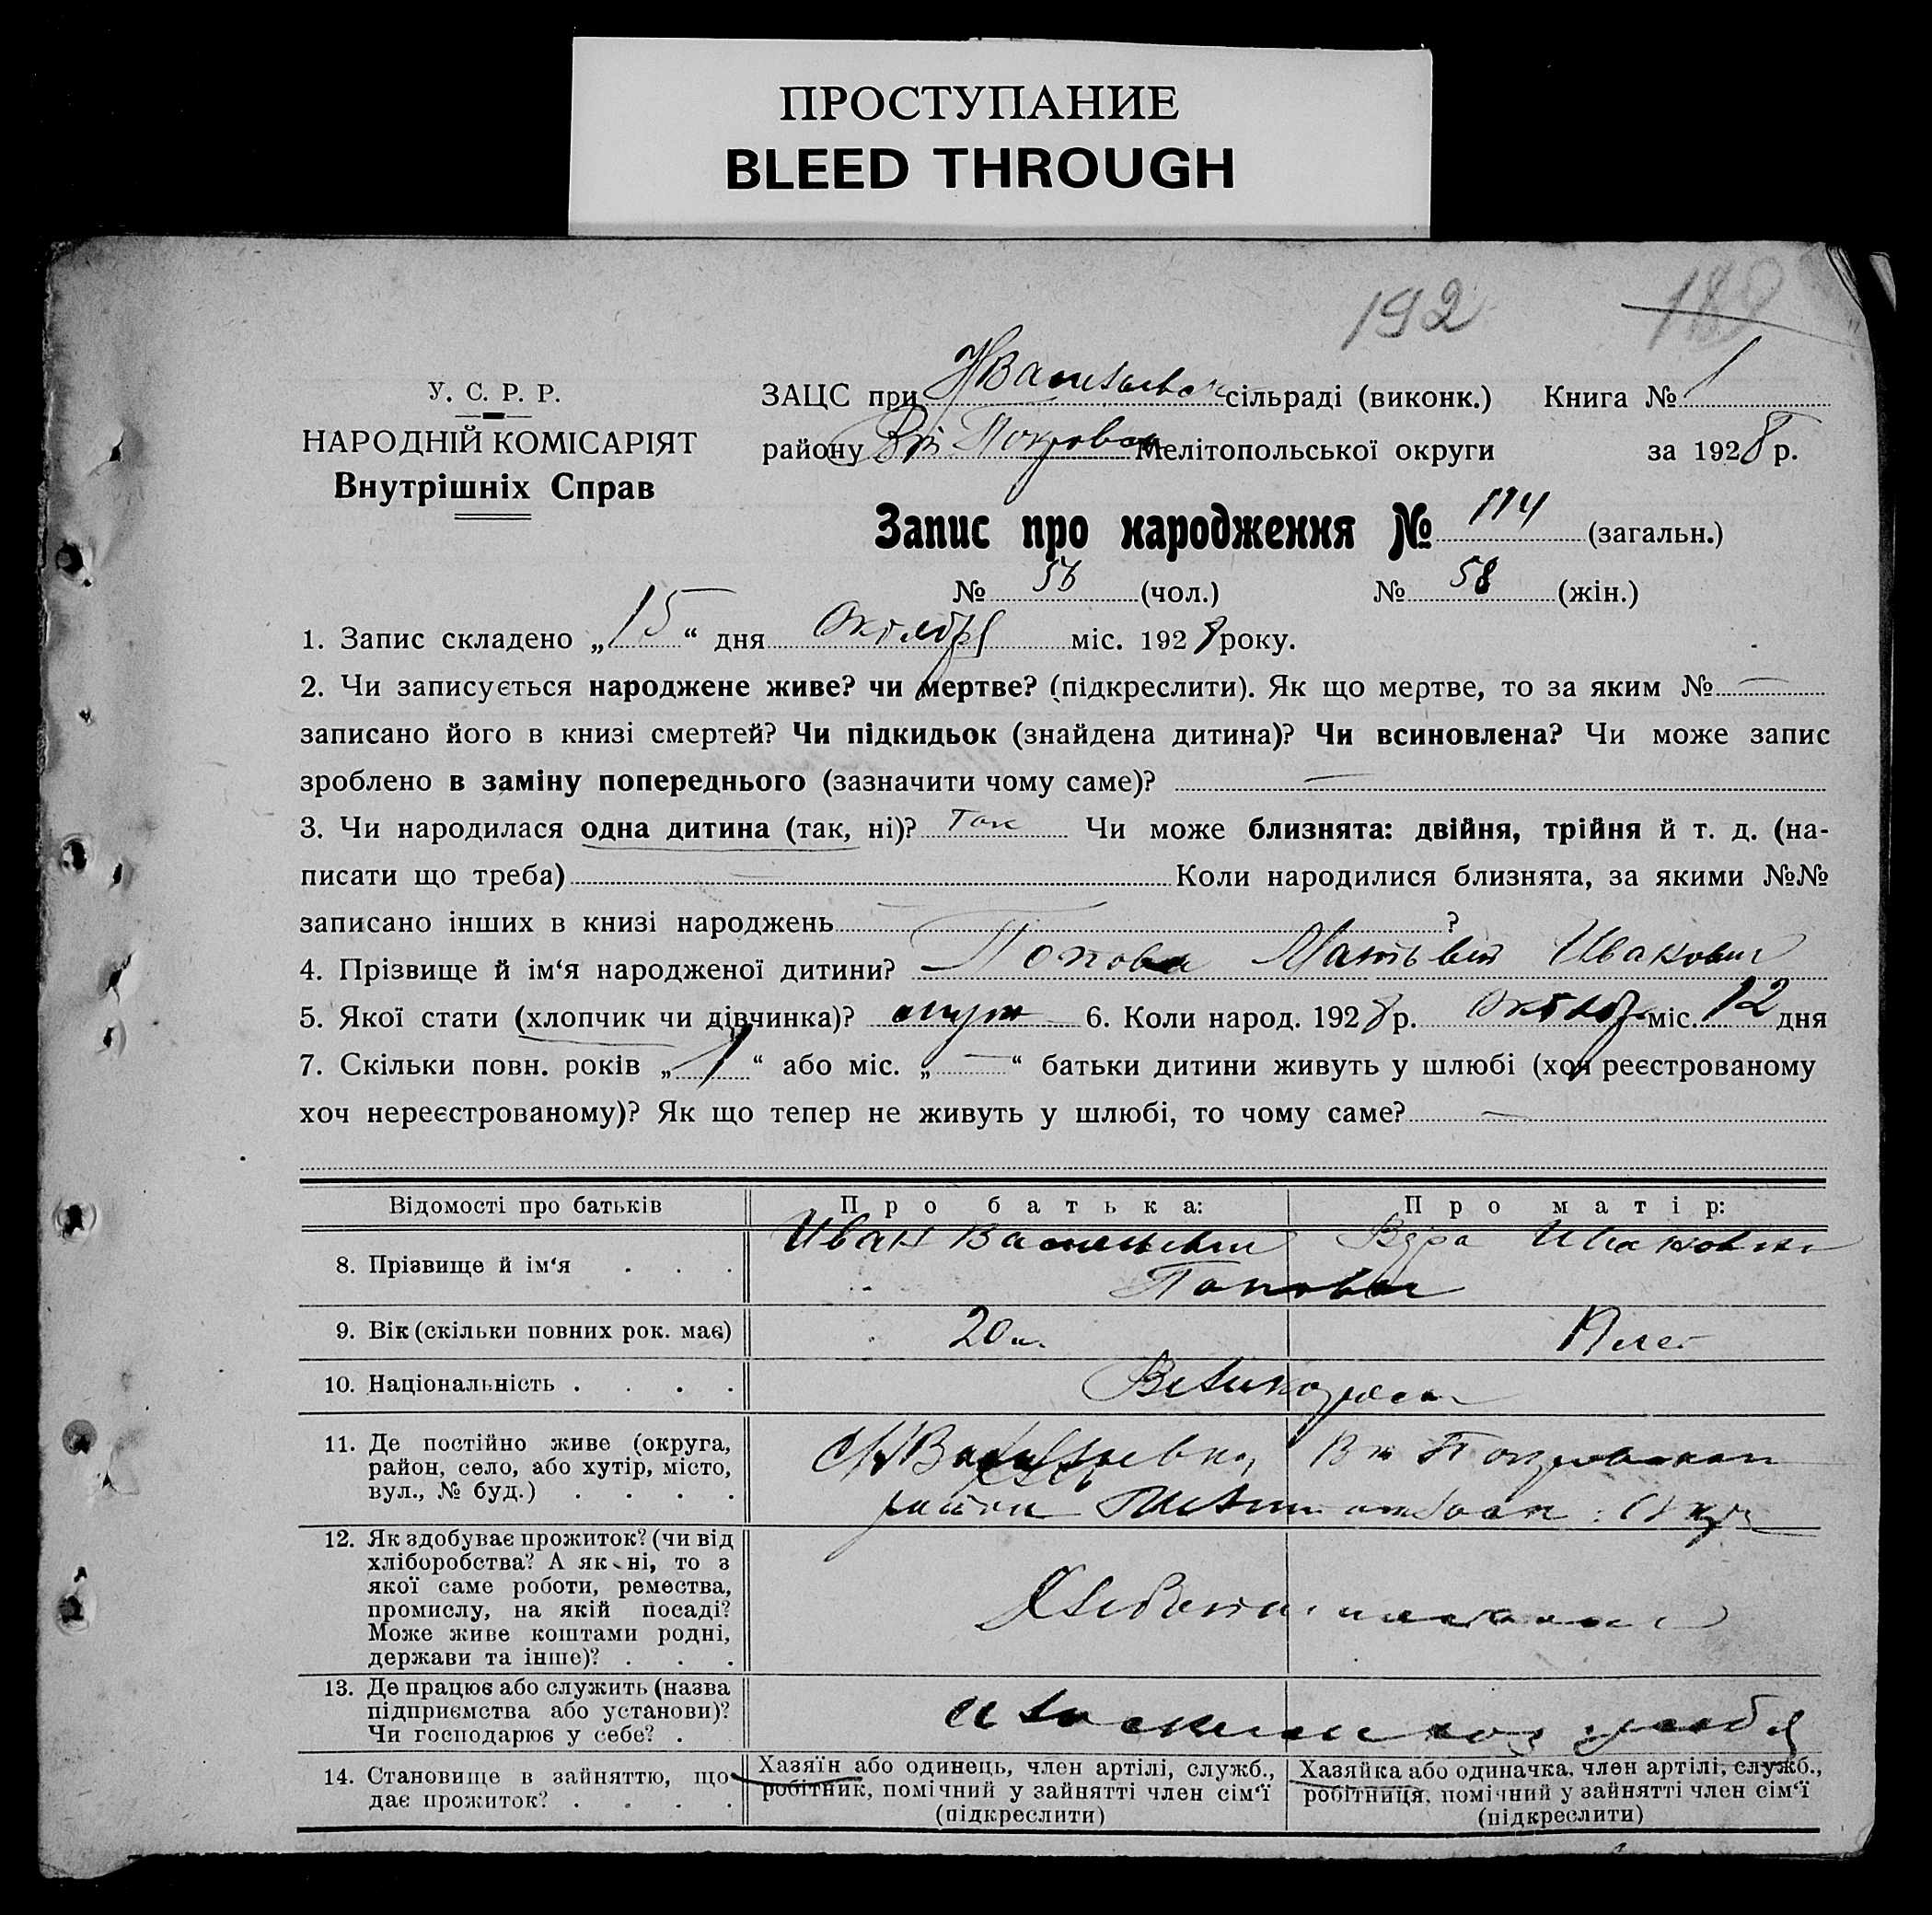 ПРОСТУПАНИЕ
BLEED THROUGH
192 188
У. С. Р. Р.
НАРОДНІЙ КОМІСАРІЯТ
Внутрішніх Справ
ЗАЦС при сільраді (виконк.) Книга № 1
району Мелітопольської округи за 1928 р.
Запис про народження № 114 (загальн.)
№ 56 (чол.) № 58 (жін.)
1. Запис складено „15“ дня Октября міс. 1928 року.
2. Чи записується народжене живе? чи мертве? (підкреслити). Як що мертве, то за яким № —
записано його в книзі смертей? Чи підкидьок (знайдена дитина)? Чи всиновлена? Чи може запис
зроблено в заміну попереднього (зазначити чому саме)? —
3. Чи народилася одна дитина (так, ні)? Так Чи може близнята: двійня, трійня й т. д. (на-
писати що треба) — Коли народилися близнята, за якими №№
записано інших в книзі народжень — ?
4. Прізвище й ім‘я народженої дитини? Попова Матьвей Иванович
5. Якої стати (хлопчик чи дівчинка)? муж 6. Коли народ. 1928 р. Октябр міс. 12 дня
7. Скільки повн. років „1“ або міс. „—“ батьки дитини живуть у шлюбі (хоч реєстрованому
хоч нереєстрованому)? Як що тепер не живуть у шлюбі, то чому саме? —
Відомості про батьків Про батька: Про матір:
8. Прізвище й ім‘я . . . Иван Васильевич Вера Ивановна
Попови
9. Вік (скільки повних рок. має) 20
10. Національність . . . . Великоросы
11. Де постійно живе (округа,
район, село, або хутір, місто,
вул., № буд.) . . . .
района
12. Як здобуває прожиток? (чи від
хліборобства? А як ні, то з
якої саме роботи, ремества,
промислу, на якій посаді?
Може живе коштами родні,
держави та інше)? . . .
13. Де працює або служить (назва
підприємства або установи)?
Чи господарює у себе? .
14. Становище в зайняттю, що
дає прожиток? . . . .
Хазяїн або одинець, член артілі, служб.,
робітник, помічний у зайнятті член сім‘ї
(підкреслити)
Хазяйка або одиначка, член артілі, служб.,
робітниця, помічний у зайнятті член сім‘ї
(підкреслити)